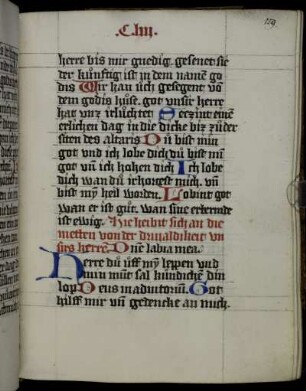 .C.liii.
159
herre bis mir gnedig. gesenet sie
der kúnftig ist in dem namē go
dis Wir han úch gesegent vō
dem godis huse. got vnser herre
hat vns irluchtet
erlichen dag in die dicke biz zu der
siten des altaris Du bist min
got vnd ich lobe dich du bist mī
got vn̄ ich hohen dich Ich lobe
dich wan du irhortest mich. vn̄
bist myn heil worden. Lobint got
wan er ist gut. wan sine erbermde
ist ewig. Hie hebit sich an die
metten von der drinaldikeit vn
sirs herrē Dn̄e labia mea.
Herre du uff myn leppen vnd
mīn mūt sal kundichē din
lop Deus in adiutoriū. Got
hilff mir vn̄ gedencke an mich.